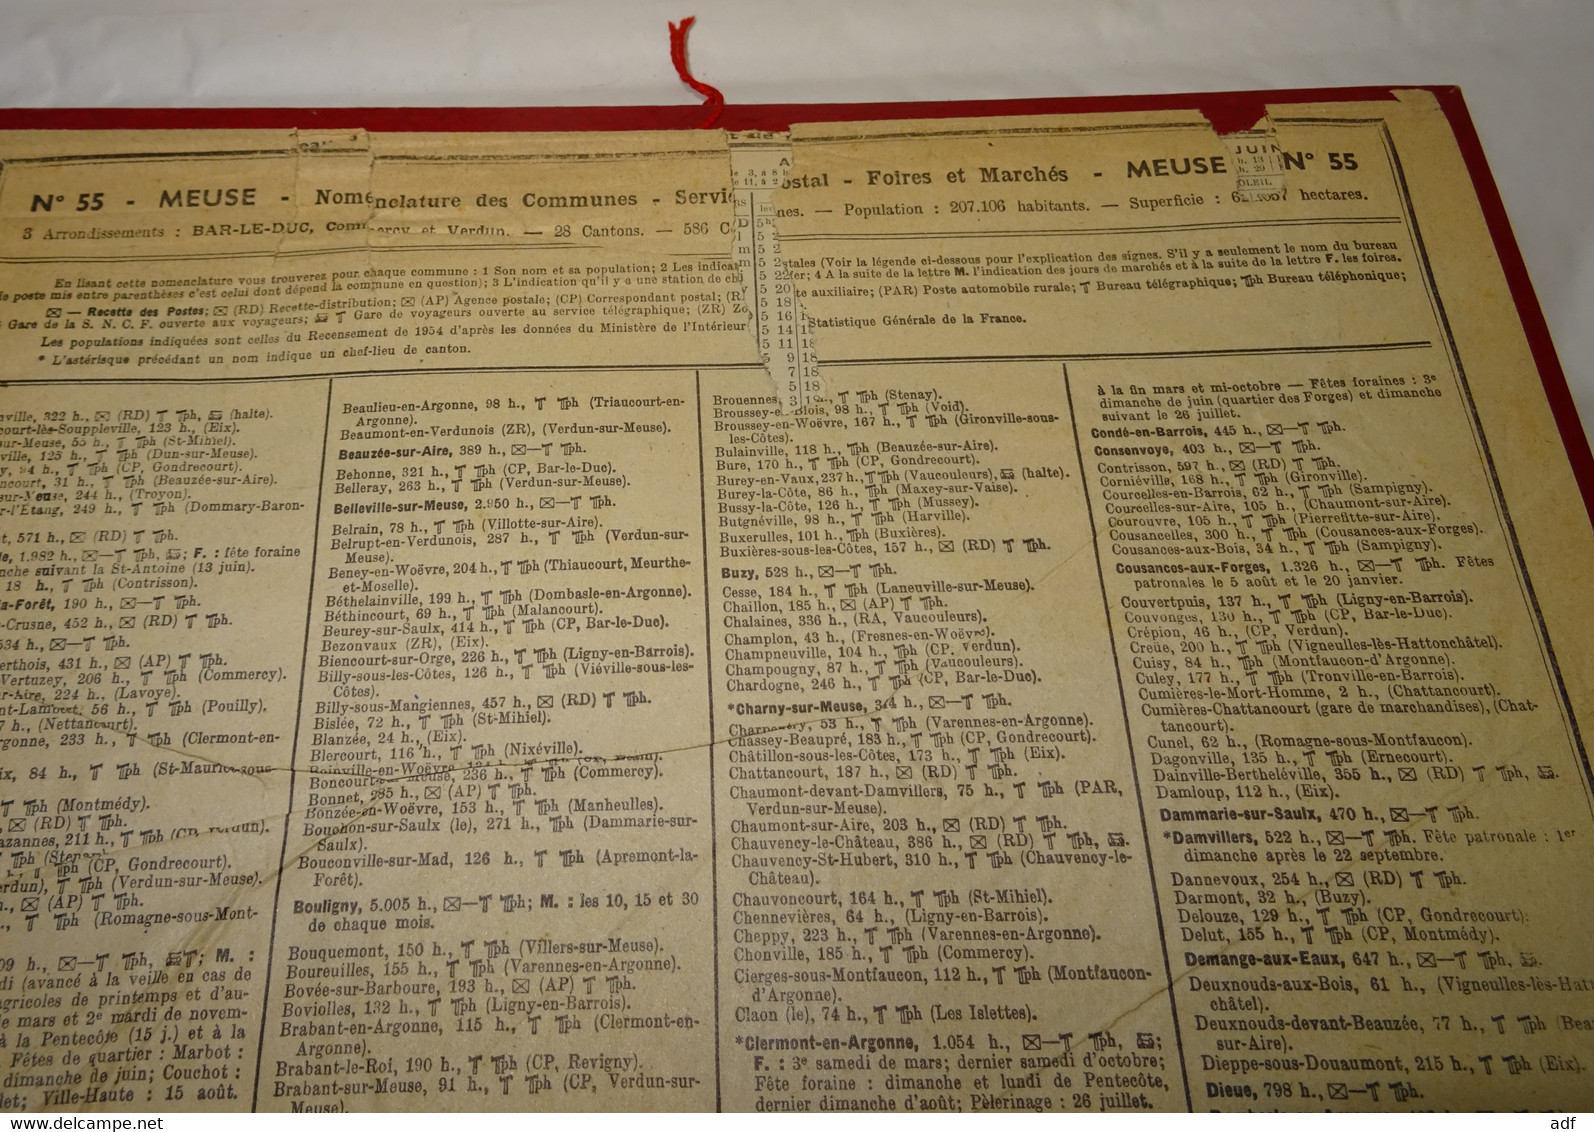 N° 55 - MEUSE - Nomenclature des Communes - Servi
ostal - Foires et Marchés - MEUSE
N° 55
JUIN
3 Arrondissements : BAR-LE-DUC, Commercy et Verdun. — 28 Cantons. — 586 C
nes. — Population : 207.106 habitants. — Superficie :
hectares.
En lisant cette nomenclature vous trouverez pour chaque commune : 1 Son nom et sa population; 2 Les indica
stales (Voir la légende ci-dessous pour l'explication des signes. S'il y a seulement le nom du bureau
e poste mis entre parenthèses c'est celui dont dépend la commune en question); 3 L'indication qu'il y a une station de ch
fer; 4 A la suite de la lettre M. l'indication des jours de marchés et à la suite de la lettre F. les foires.
— Recette des Postes; (RD) Recette-distribution; (AP) Agence postale; (CP) Correspondant postal; (R
te auxiliaire; (PAR) Poste automobile rurale; T Bureau télégraphique; Tph Bureau téléphonique;
Gare de la S. N. C. F. ouverte aux voyageurs; T Gare de voyageurs ouverte au service télégraphique; (ZR) Zo
Les populations indiquées sont celles du Recensement de 1954 d'après les données du Ministère de l'Intérieur
Statistique Générale de la France.
* L'astérisque précédant un nom indique un chef-lieu de canton.
ville, 322 h., (RD) T Tph, (halte).
court-lès-Souppleville, 123 h., (Eix).
sur-Meuse, 55 h., T Tph (St-Mihiel).
ville, 125 h., T Tph (Dun-sur-Meuse).
h., T Tph (CP, Gondrecourt).
ncourt, 31 h., T Tph (Beauzée-sur-Aire).
sur-Meuse, 244 h., (Troyon).
r-l'Etang, 249 h., T Tph (Dommary-Baron-
t, 571 h., (RD) T Tph.
le, 1.982 h., —T Tph, ; F. : fête foraine
nche suivant la St-Antoine (13 juin).
18 h., T Tph (Contrisson).
la-Forêt, 190 h., —T Tph.
-Crusne, 452 h., (RD) T Tph.
534 h., —T Tph.
erthois, 431 h., (AP) T Tph.
Vertuzey, 206 h., T Tph (Commercy).
r-Aire, 224 h., (Lavoye).
nt-Lambert, 56 h., T Tph (Pouilly).
7 h., (Nettancourt).
rgonne, 233 h., T Tph (Clermont-en-
ix, 84 h., T Tph (St-Maurice-sous-
T Tph (Montmédy).
(RD) T Tph.
azannes, 211 h., T Tph (CP, Verdun).
T Tph
Tph (CP, Gondrecourt).
erdun), T Tph (Verdun-sur-Meuse).
h., (AP) T Tph.
., T Tph (Romagne-sous-Mont-
09 h., —T Tph, T; M. :
di (avancé à la veille en cas de
agricoles de printemps et d'au-
e mars et 2e mardi de novem-
à la Pentecôte (15 j.) et à la
Fêtes de quartier : Marbot :
dimanche de juin; Couchot :
let; Ville-Haute : 15 août.
Beaulieu-en-Argonne, 98 h., T Tph (Triaucourt-en-
Argonne).
Beaumont-en-Verdunois (ZR), (Verdun-sur-Meuse).
Beauzée-sur-Aire, 389 h., —T Tph.
Behonne, 321 h., T Tph (CP, Bar-le-Duc).
Belleray, 263 h., T Tph (Verdun-sur-Meuse).
Belleville-sur-Meuse, 2.950 h., —T Tph.
Belrain, 78 h., T Tph (Villotte-sur-Aire).
Belrupt-en-Verdunois, 287 h., T Tph (Verdun-sur-
Meuse).
Beney-en-Woëvre, 204 h., T Tph (Thiaucourt, Meurthe-
et-Moselle).
Béthelainville, 199 h., T Tph (Dombasle-en-Argonne).
Béthincourt, 69 h., T Tph (Malancourt).
Beurey-sur-Saulx, 414 h., T Tph (CP, Bar-le-Duc).
Bezonvaux (ZR), (Eix).
Biencourt-sur-Orge, 226 h., T Tph (Ligny-en-Barrois).
Billy-sous-les-Côtes, 126 h., T Tph (Viéville-sous-les-
Côtes).
Billy-sous-Mangiennes, 457 h., (RD) T Tph.
Bislée, 72 h., T Tph (St-Mihiel).
Blanzée, 24 h., (Eix).
Blercourt, 116 h., T Tph (Nixéville).
Boinville-en-Woëvre
Boncourt-sur-Meuse, 236 h., T Tph (Commercy).
Bonnet, 285 h., (AP) T Tph.
Bonzée-en-Woëvre, 153 h., T Tph (Manheulles).
Bouchon-sur-Saulx (le), 271 h., T Tph (Dammarie-sur-
Saulx).
Bouconville-sur-Mad, 126 h., T Tph (Apremont-la-
Forêt).
Bouligny, 5.005 h., —T Tph; M. : les 10, 15 et 30
de chaque mois.
Bouquemont, 150 h., T Tph (Villers-sur-Meuse).
Boureuilles, 155 h., T Tph (Varennes-en-Argonne).
Bovée-sur-Barboure, 193 h., (AP) T Tph.
Boviolles, 132 h., T Tph (Ligny-en-Barrois).
Brabant-en-Argonne, 115 h., T Tph (Clermont-en-
Argonne).
Brabant-le-Roi, 190 h., T Tph (CP, Revigny).
Brabant-sur-Meuse, 91 h., T Tph (CP, Verdun-sur-
Meuse).
Brouennes, T Tph (Stenay).
Broussey-e Blois, 98 h., T Tph (Void).
Broussey-en-Woëvre, 167 h., T Tph (Gironville-sous-
les-Côtes).
Bulainville, 118 h., T Tph (Beauzée-sur-Aire).
Bure, 170 h., T Tph (CP, Gondrecourt).
Burey-en-Vaux, 237 h., T Tph (Vaucouleurs), (halte).
Burey-la-Côte, 86 h., T Tph (Maxey-sur-Vaise).
Bussy-la-Côte, 126 h., T Tph (Mussey).
Butgnéville, 98 h., T Tph (Harville).
Buxerulles, 101 h., T Tph (Buxières).
Buxières-sous-les-Côtes, 157 h., (RD) T Tph.
Buzy, 528 h., —T Tph.
Cesse, 184 h., T Tph (Laneuville-sur-Meuse).
Chaillon, 185 h., (AP) T Tph.
Chalaines, 336 h., (RA, Vaucouleurs).
Champlon, 43 h., (Fresnes-en-Woëvre).
Champneuville, 104 h., T Tph (CP, Verdun).
Champougny, 87 h., T Tph (Vaucouleurs).
Chardogne, 246 h., T Tph (CP, Bar-le-Duc).
*Charny-sur-Meuse, 344 h., —T Tph.
Charpentry, 53 h., T Tph (Varennes-en-Argonne).
Chassey-Beaupré, 183 h., T Tph (CP, Gondrecourt).
Châtillon-sous-les-Côtes, 173 h., T Tph (Eix).
Chattancourt, 187 h., (RD) T Tph.
Chaumont-devant-Damvillers, 75 h., T Tph (PAR,
Verdun-sur-Meuse).
Chaumont-sur-Aire, 203 h., (RD) T Tph.
Chauvency-le-Château, 386 h., (RD) T Tph, .
Chauvency-St-Hubert, 310 h., T Tph (Chauvency-le-
Château).
Chauvoncourt, 164 h., T Tph (St-Mihiel).
Chennevières, 64 h., (Ligny-en-Barrois).
Cheppy, 223 h., T Tph (Varennes-en-Argonne).
Chonville, 185 h., T Tph (Commercy).
Cierges-sous-Montfaucon, 112 h., T Tph (Montfaucon-
d'Argonne).
Claon (le), 74 h., T Tph (Les Islettes).
*Clermont-en-Argonne, 1.054 h., —T Tph, ;
F. : 3e samedi de mars; dernier samedi d'octobre;
Fête foraine : dimanche et lundi de Pentecôte,
dernier dimanche d'août; Pèlerinage : 26 juillet.
à la fin mars et mi-octobre — Fêtes foraines : 3e
dimanche de juin (quartier des Forges) et dimanche
suivant le 26 juillet.
Condé-en-Barrois, 445 h., —T Tph.
Consenvoye, 403 h., —T Tph.
Contrisson, 597 h., (RD) T Tph.
Corniéville, 168 h., T Tph (Gironville).
Courcelles-en-Barrois, 62 h., T Tph (Sampigny).
Courcelles-sur-Aire, 105 h., (Chaumont-sur-Aire).
Courouvre, 105 h., T Tph (Pierrefitte-sur-Aire).
Cousancelles, 300 h., T Tph (Cousances-aux-Forges).
Cousances-aux-Bois, 34 h., T Tph (Sampigny).
Cousances-aux-Forges, 1.326 h., —T Tph. Fêtes
patronales le 5 août et le 20 janvier.
Couvertpuis, 137 h., T Tph (Ligny-en-Barrois).
Couvonges, 130 h., T Tph (CP, Bar-le-Duc).
Crépion, 46 h., (CP, Verdun).
Creüe, 200 h., T Tph (Vigneulles-lès-Hattonchâtel).
Cuisy, 84 h., T Tph (Montfaucon-d'Argonne).
Culey, 177 h., T Tph (Tronville-en-Barrois).
Cumières-le-Mort-Homme, 2 h., (Chattancourt).
Cumières-Chattancourt (gare de marchandises), (Chat-
tancourt).
Cunel, 62 h., (Romagne-sous-Montfaucon).
Dagonville, 135 h., T Tph (Ernecourt).
Dainville-Bertheléville, 355 h., (RD) T Tph, .
Damloup, 112 h., (Eix).
Dammarie-sur-Saulx, 470 h., —T Tph.
*Damvillers, 522 h., —T Tph. Fête patronale : 1er
dimanche après le 22 septembre.
Dannevoux, 254 h., (RD) T Tph.
Darmont, 32 h., (Buzy).
Delouze, 129 h., T Tph (CP, Gondrecourt).
Delut, 155 h., T Tph (CP, Montmédy).
Demange-aux-Eaux, 647 h., —T Tph, .
Deuxnouds-aux-Bois, 61 h., (Vigneulles-lès-Hatt
châtel).
Deuxnouds-devant-Beauzée, 77 h., T Tph (Beau
sur-Aire).
Dieppe-sous-Douaumont, 215 h., T Tph (Eix).
Dieue, 798 h., —T Tph.
delcampe.net
adf